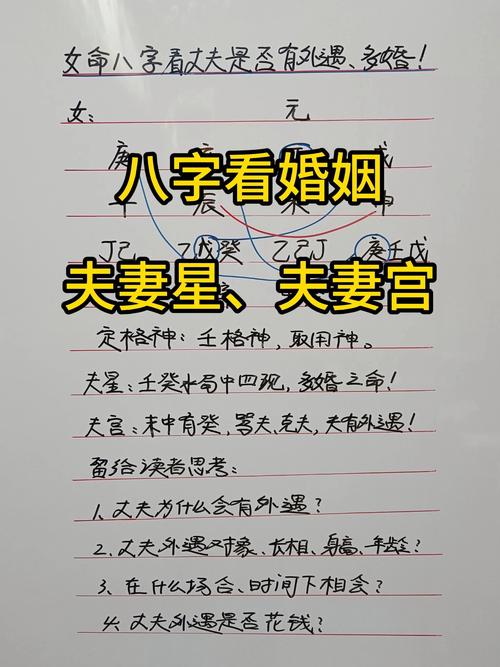 女命八字看丈夫是否有外遇、多婚!
女: 元
庚 戊
八字看婚姻
午 辰 未 申
丁己 乙戊癸 乙己丁 庚壬戊
夫妻星、夫妻宫
定格神: 壬格神,取用神。
夫星: 壬癸水局中四现,多婚之命!
夫宫: 未中有癸,骂夫、克夫,夫有外遇!
留给读者思考:
1、丈夫为什么会有外遇?
2、丈夫外遇对象、长相、身高、年龄?
3、在什么场合、时间下相会?
4、丈夫外遇是否花钱?